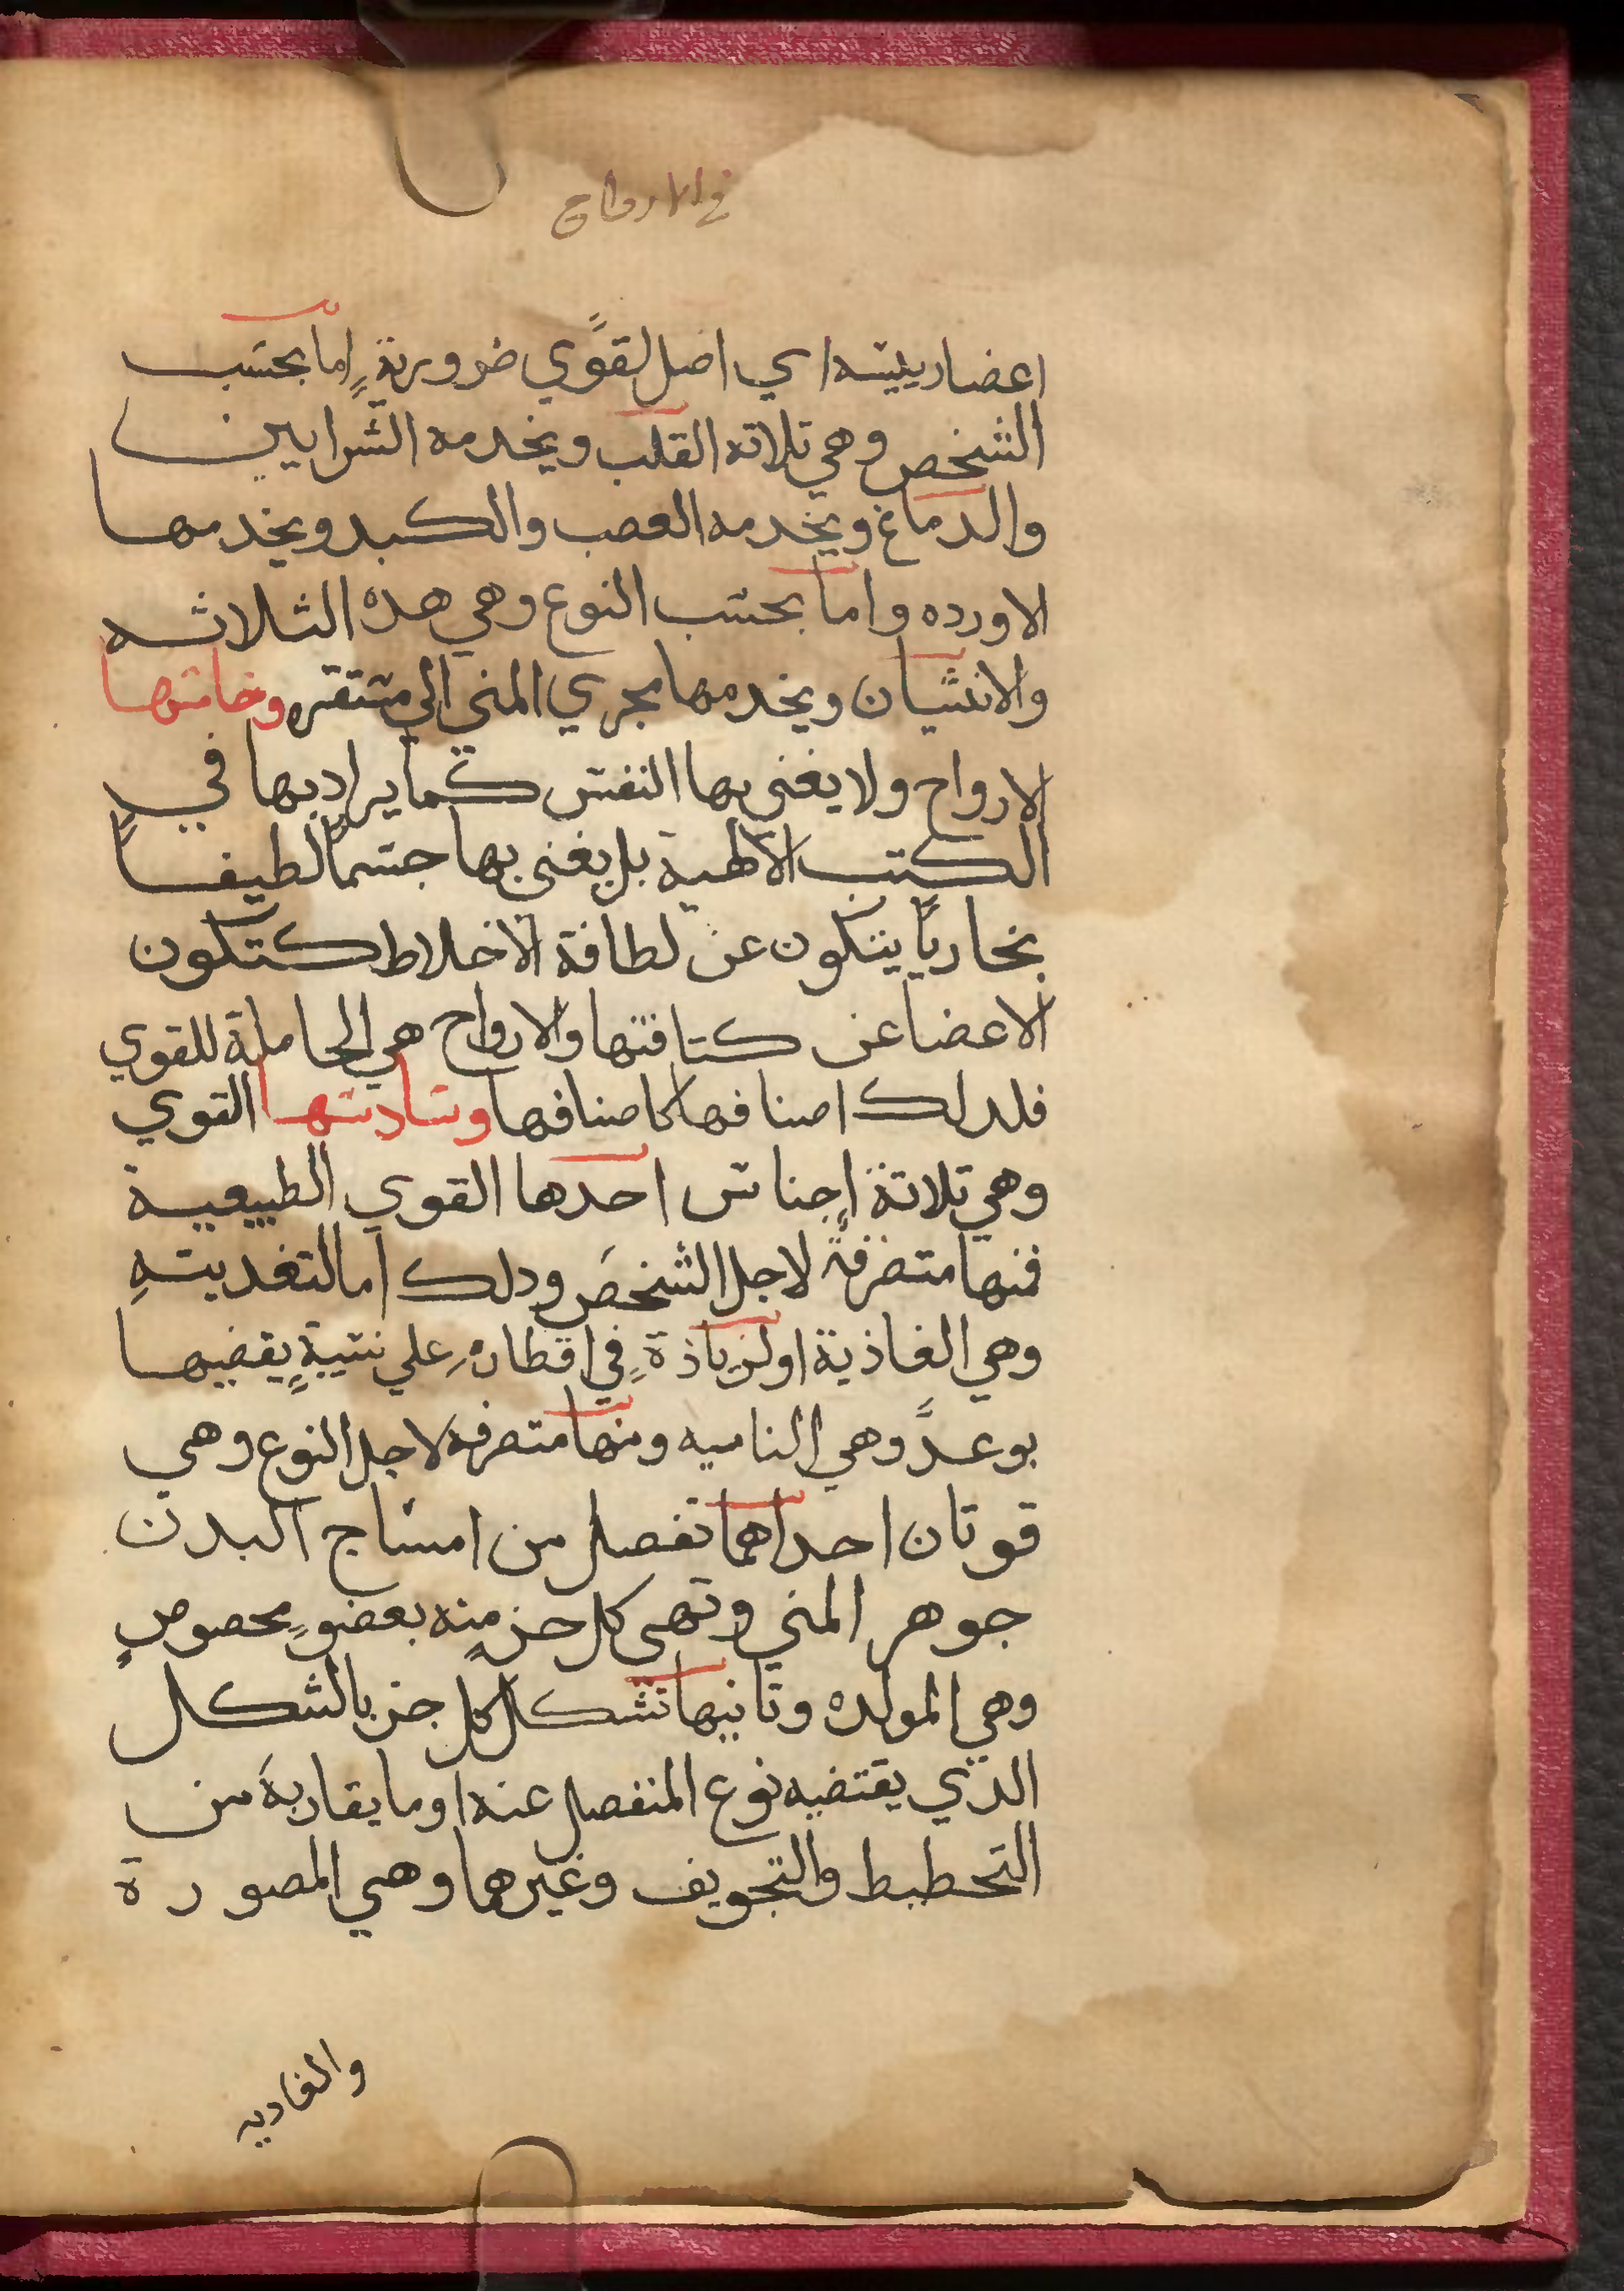 في الارواح
اعضا رييسه اي اصل لقوًي ضروريةٍ اما بحسب
الشخص وهي ثلاثه القلب ويخدمه الشرايين
والدماغ ويخدمه العصب والكبد ويخدمها
الاورده واما بحسب النوع وهي هده الثلاثه
والانثيان ويخدمها مجري المني الي مستقره وخامسها
الارواح ولا يغني بها النفس كما يراد بها في
الكتب الالهية بل يغني بها جسمًا لطيفًا
بخاريًا يتكون عن لطافة الاخلاط كتكون
الاعضا عن كتافتها والارواح هي الحاملة للقوي
فلدلك اصنافها كاصنافها وسادسها القوي
وهي ثلاثة اجناس احدها القوي الطبيعية
فمنها متصرفةً لاجل الشخص ودلك اما لتغديتهِ
وهي الغاذية او لزياذةٍ في اقطارهِ علي نسبةٍ يقضيها
بوعدً وهي الناميه ومنها متصرفه لاجل النوع وهي
قوتان احداهما تفصل من امشاج البدن
جوهر المني وتهي كل جزٍ منه بعضوٍ مخصوصٍ
وهي المولده وثانيها تشكل كل جز بالشكل
الذي يقتضيه نوع المنفصل عنه او ما يقاربه من
التخطيط والتجويف وغيرهما وهي المصورة
والغاديه